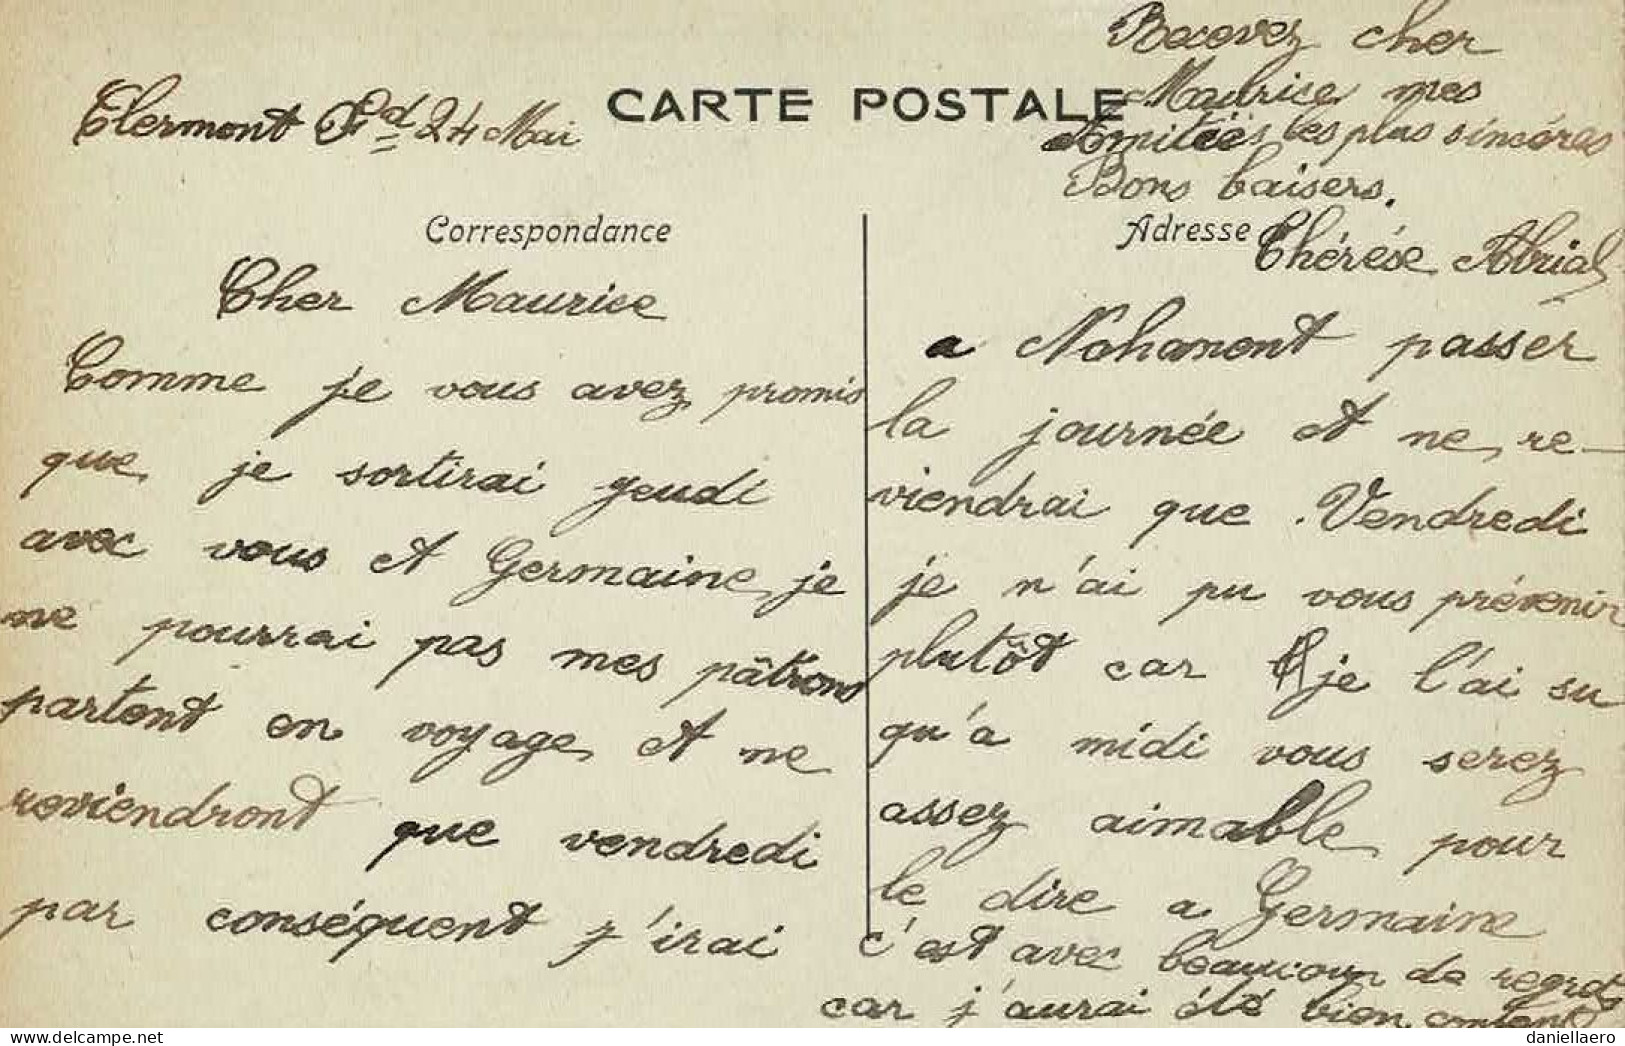 Clermont Fd 24 Mai
CARTE POSTALE
Correspondance
Cher Maurice
Comme je vous avez promis
que je sortirai jeudi
avec vous et Germaine, je
ne pourrai pas mes pâtrons
partent en voyage et ne
reviendront que vendredi
par conséquent j'irai
a Nohanent passer
la journée et ne re-
viendrai que Vendredi
je n'ai pu vous prévenir
plutôt car je l'ai su
qu'a midi vous serez
assez aimable pour
le dire a Germaine
c'est avec beaucoup de regrets
car j'aurai été bien contente
Recevez cher
Maurice mes
Amitiées les plus sincéres
Bons baisers.
Adresse
Thérése Abrial
delcampe.net
daniellaero